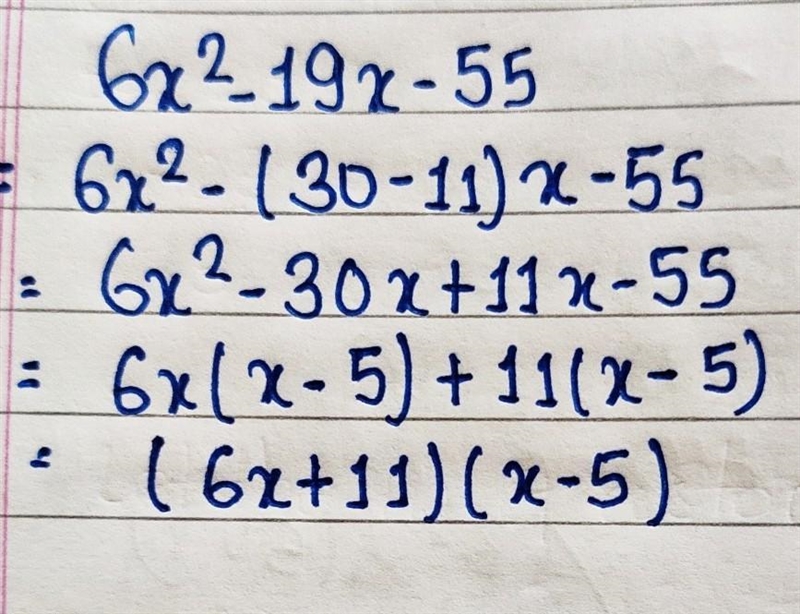 6x² - 19x - 55
= 6x² - (30 - 11) x - 55
= 6x² - 30x + 11x - 55
= 6x(x - 5) + 11(x - 5)
= (6x + 11)(x - 5)